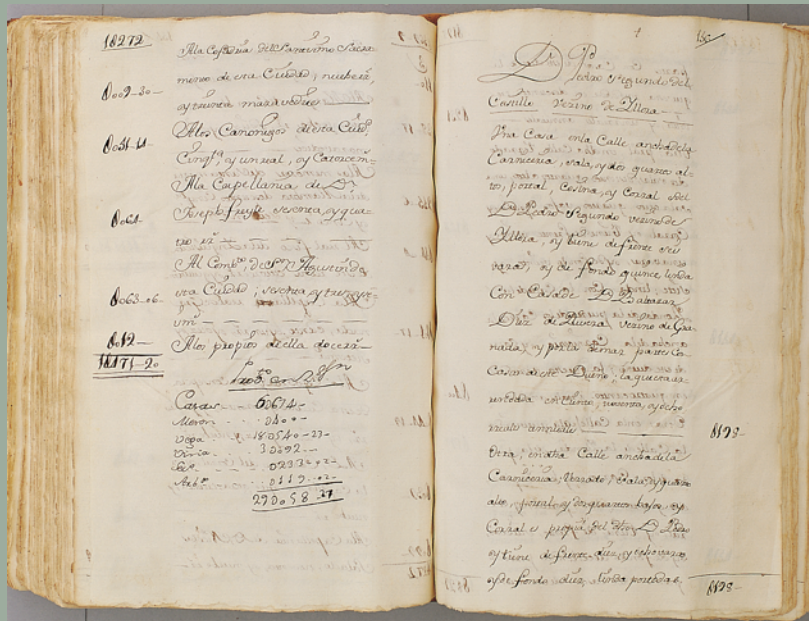 1U272
A la Cofadria del Santisimo Sacra
mento de esta Ciudad, nuebe rr.
U009-30-
y treinta maravedies
A los Canonigos de esta Ciud.
U051-14
Cinq.ta, y un real, y Catorce m.
A la Capellania de Dn.
Joseph freyle sesenta, y qua
U064-
tro rr.
Al Comb.to de Sn. Agustin de
esta Ciudad, sesenta, y tres, y
U063-06-
U012-
A los propios de ella doce rr.
1U471-20
Casas 6U614-
Vega 18U540-23-
3U092-
0233-02-
0119-02-
29U058-27
150
Dn. Pedro Segundo del
Castillo Vezino de Yllora
Una Casa en la Calle ancha de la
Carniceria, sala, y dos quartos al
tos, portal, Cosina, y Corral del
Dn. Pedro Segundo vezino de
Yllora, y tiene de frente seis
varas, y de fondo quince linda
Con Casa de Dn. Baltazar
Diez de Rivera vezino de Gra
nada, y por la demas partes Co
Casas de este Dueño; la que esta ar
rendada en Ciento, noventa, y ocho
reales annuales
U198-
Otra, en otra Calle ancha de la
Carniceria, Sala, y quarto
alto, portal, y dos quartos bajos, y
Corral es propia del dho Dn. Pedro
y tiene de frente diez, y ocho varas
y de fondo diez, linda por todas
U198-